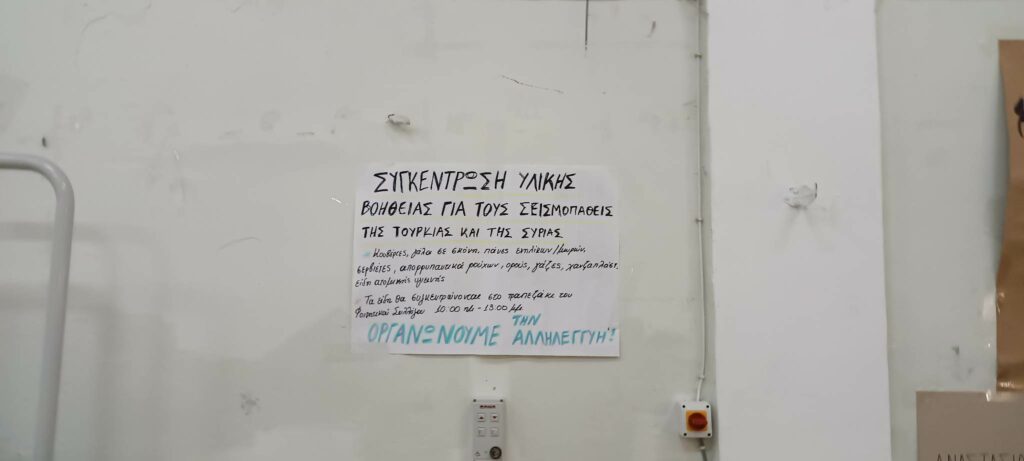 ΣΥΓΚΕΝΤΡΩΣΗ ΥΛΙΚΗΣ
ΒΟΗΘΕΙΑΣ ΓΙΑ ΤΟΥΣ ΣΕΙΣΜΟΠΑΘΕΙΣ
ΤΗΣ ΤΟΥΡΚΙΑΣ ΚΑΙ ΤΗΣ ΣΥΡΙΑΣ
Κουβέρτες, γάλα σε σκόνη, πάνες ενηλίκων/μωρών,
σερβιέτες, απορρυπαντικά ρούχων, ορούς, γάζες, χανζαπλάστ,
είδη ατομικής υγιεινής
Τα είδη θα συγκεντρώνονται στο τραπεζάκι του
Φοιτητικού Συλλόγου 10:00 πμ - 13:00 μμ
ΟΡΓΑΝΩΝΟΥΜΕ ΤΗΝ ΑΛΛΗΛΕΓΓΥΗ!